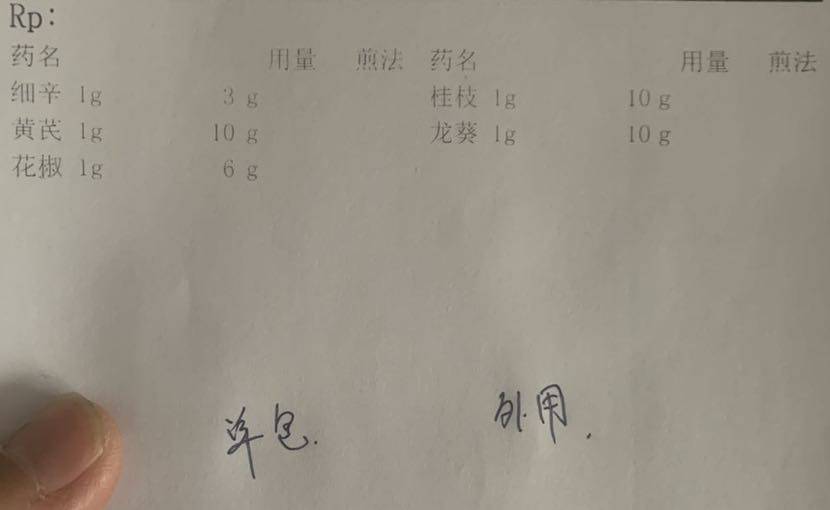 Rp:
药名 用量 煎法 药名 用量 煎法
细辛 1g 3 g 桂枝 1g 10 g
黄芪 1g 10 g 龙葵 1g 10 g
花椒 1g 6 g
单包. 外用.